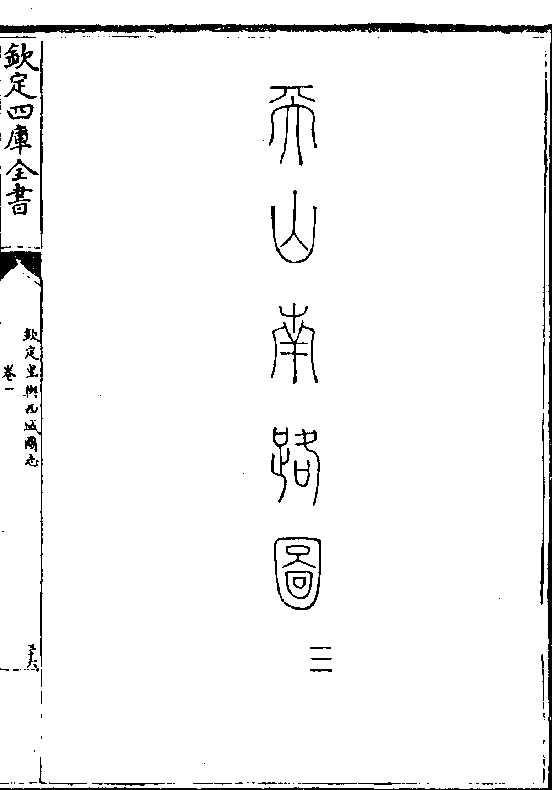 天山南路圖三
欽定四庫全書
欽定皇輿西域圖志
卷一